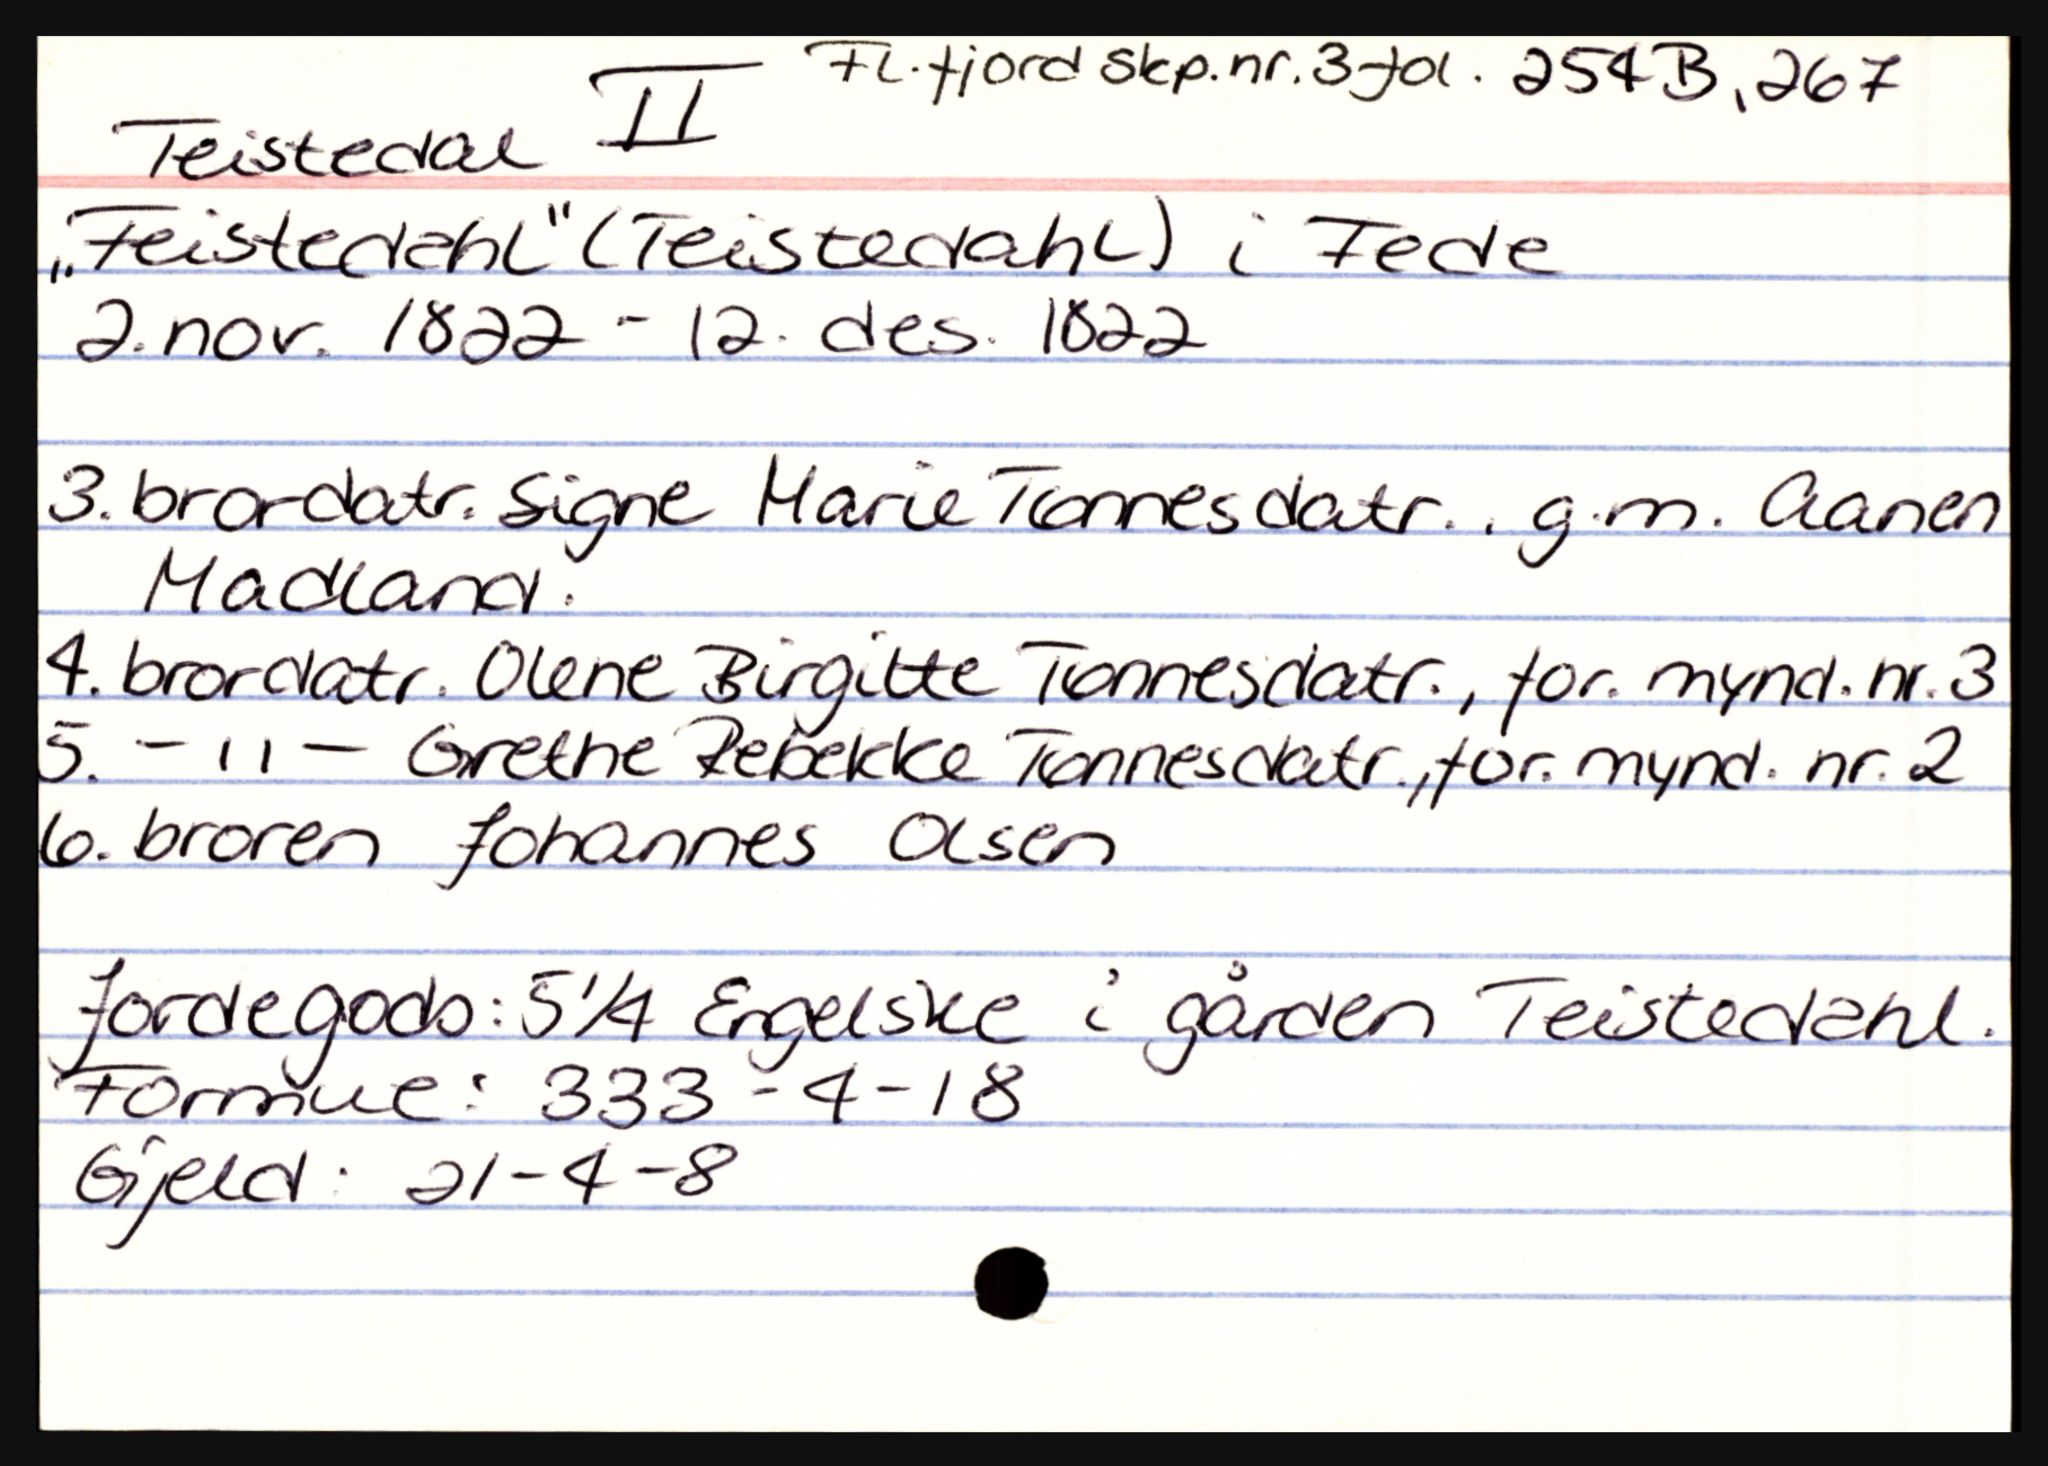 Fl.fjord skp.nr.3 fol. 254B, 267
Teistedal II
„Feistedahl" (Teistedahl) i Fede
2.nov. 1822 - 12. des. 1822
3. brordatr. Signe Marie Tønnesdatr., g.m. Aanen
Madland.
4. brordatr. Olene Birgitte Tønnesdatr., for. mynd. nr. 3
5. - " - Grethe Rebekke Tønnesdatr., for. mynd. nr. 2
6. broren Johannes Olsen
Jordegods: 5 1/4 Engelske i gården Teistedahl.
Formue: 333-4-18
Gjeld: 21-4-8